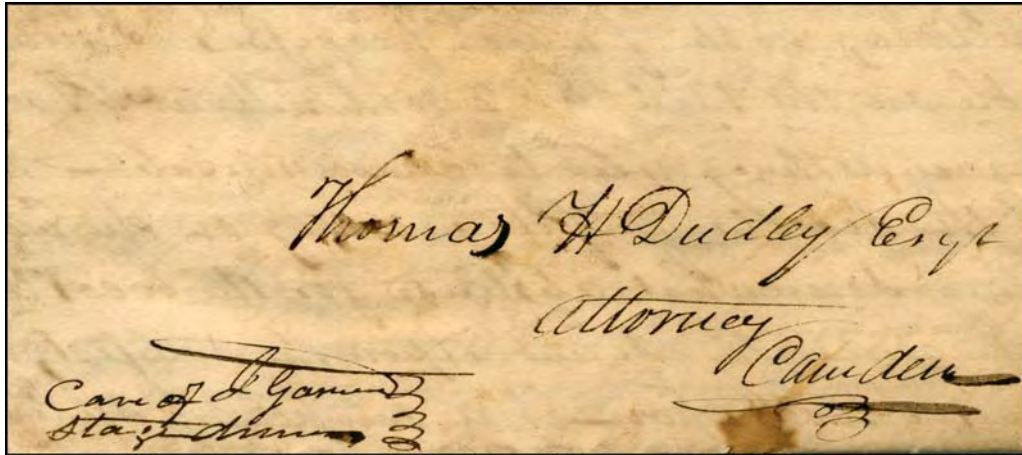 Thomas H Dudley Esqr
Attorney
Camden
Care of
Stage driver